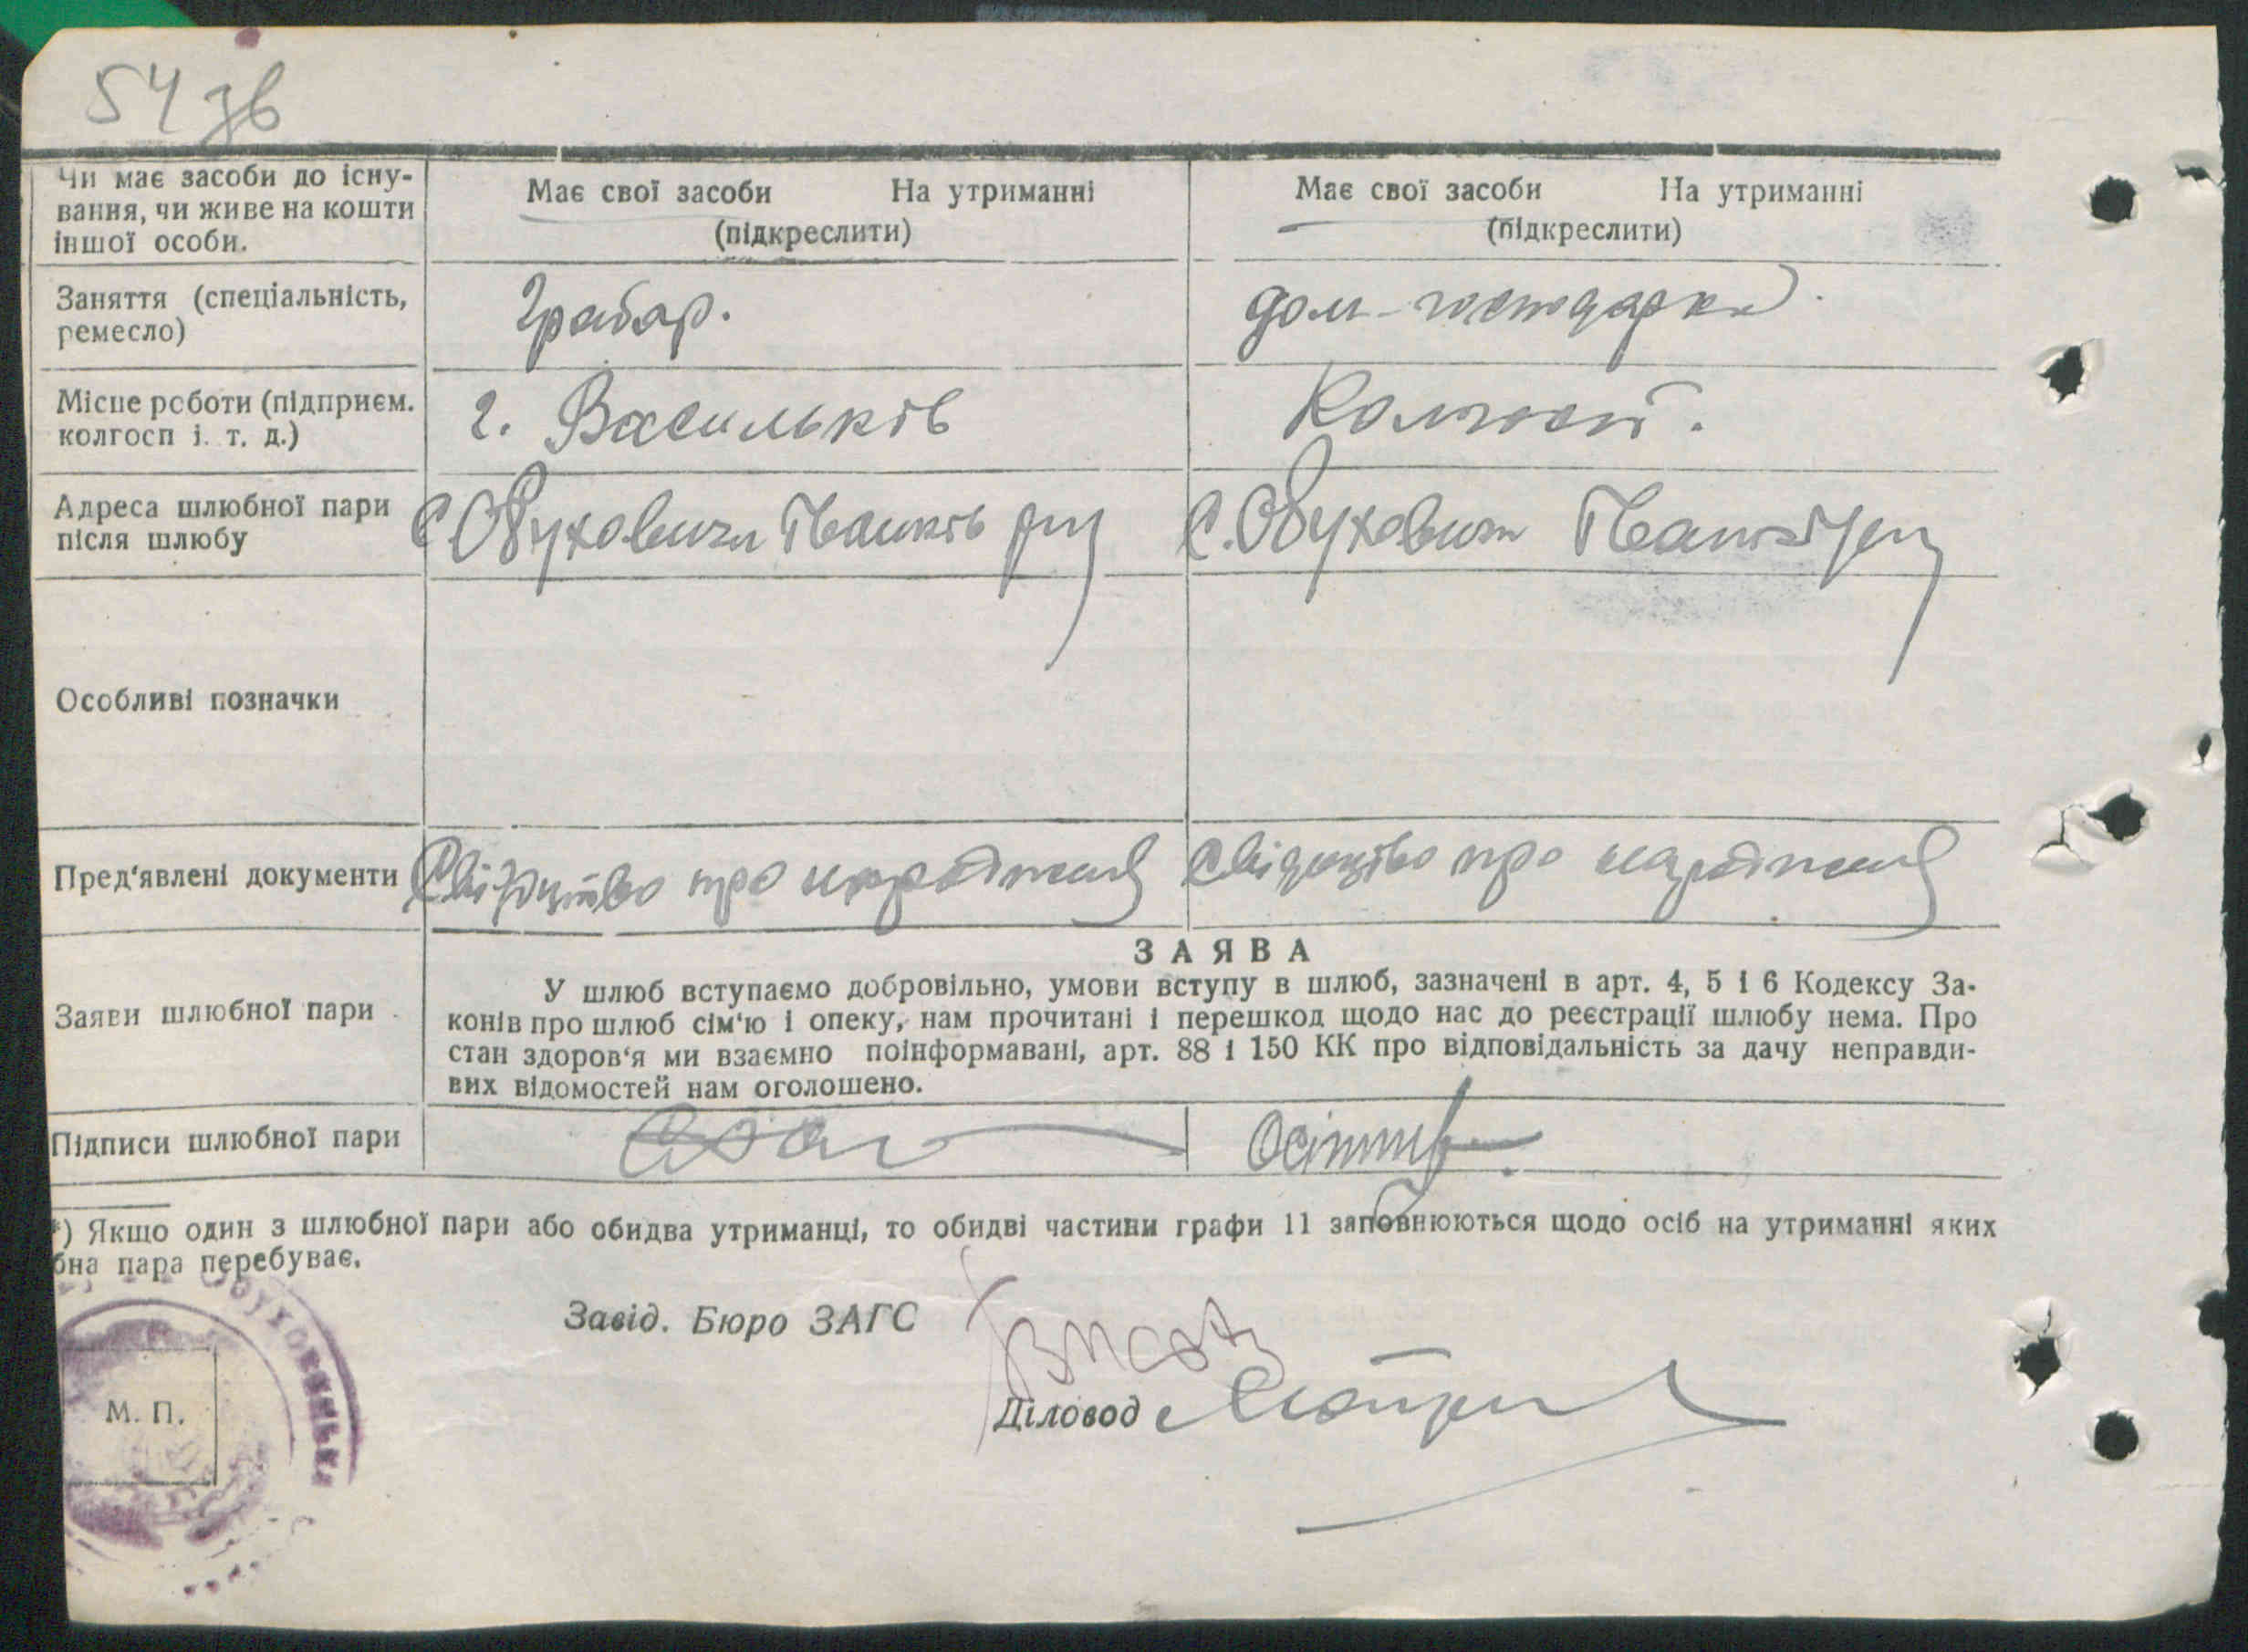 54 зв
Чи має засоби до існу-
вання, чи живе на кошти
іншої особи.
Має свої засоби На утриманні
(підкреслити)
Має свої засоби На утриманні
(підкреслити)
Заняття (спеціальність,
ремесло)
Грабар.
дом-господарка
Місце роботи (підприєм.
колгосп і. т. д.)
г. Васильків
Колгосп.
Адреса шлюбної пари
після шлюбу
С. Обуховичи Іванків р-ну
С. Обуховичи Іванків р-ну
Особливі позначки
Пред'явлені документи
Свідицтво про народження
Свідицтво про народження
Заяви шлюбної пари
ЗАЯВА
У шлюб вступаємо добровільно, умови вступу в шлюб, зазначені в арт. 4, 5 і 6 Кодексу За-
конів про шлюб сім'ю і опеку, нам прочитані і перешкод щодо нас до реєстрації шлюбу нема. Про
стан здоров'я ми взаємно поінформавані, арт. 88 і 150 КК про відповідальність за дачу неправди-
вих відомостей нам оголошено.
Підписи шлюбної пари
*) Якщо один з шлюбної пари або обидва утриманці, то обидві частини графи 11 заповнюються щодо осіб на утриманні яких
бна пара перебуває.
Завід. Бюро ЗАГС
Діловод
М. П.